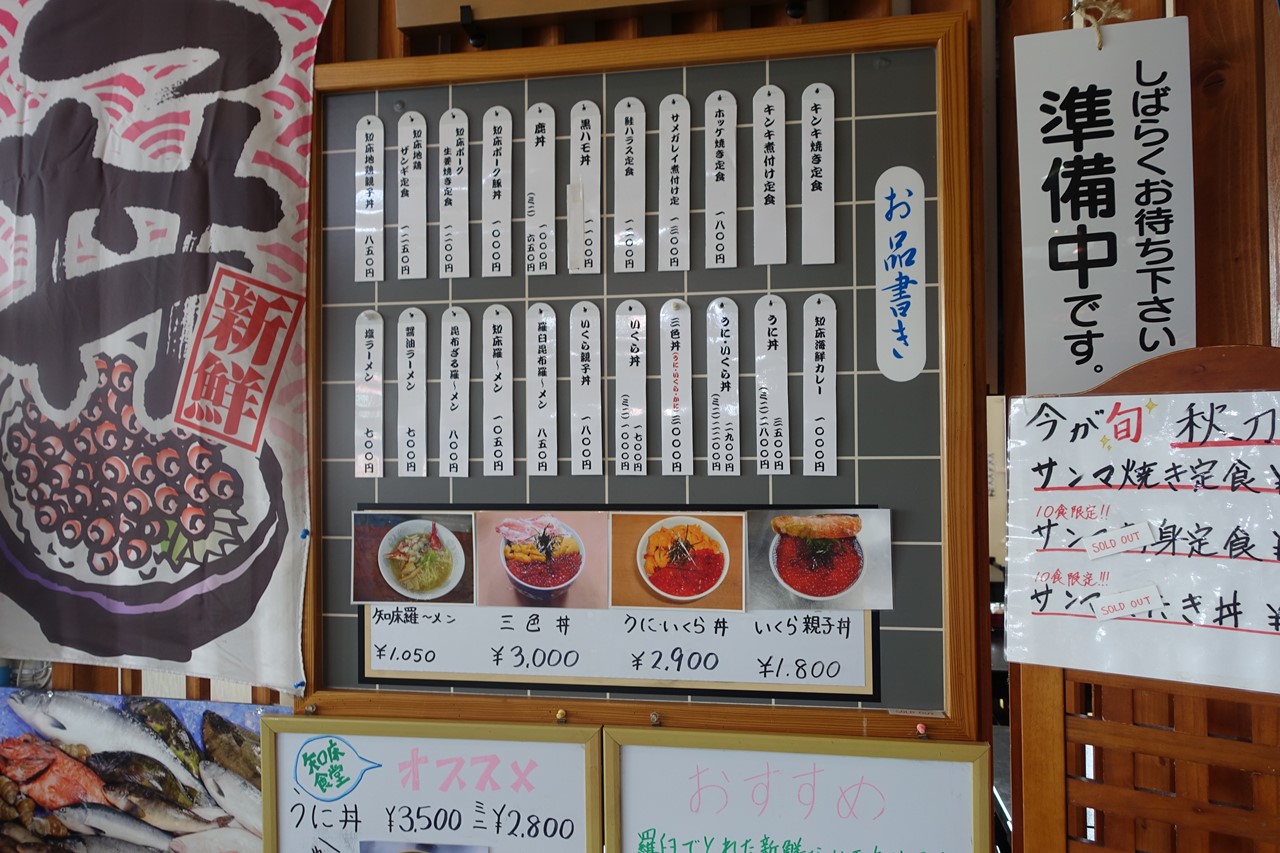 丼
新鮮
お品書き
キンキ焼き定食
キンキ煮付け定食
ホッケ焼き定食 一八〇〇円
サメガレイ煮付け定 一三〇〇円
鮭ハラス定食 一一〇〇円
黒ハモ丼 一一〇〇円
鹿丼 一〇〇〇円
(ミニ) 六五〇円
知床ポーク豚丼 一〇〇〇円
知床ポーク
生姜焼き定食 一二〇〇円
知床地鶏
ザンギ定食 一二五〇円
知床地鶏親子丼 八五〇円
知床海鮮カレー 一〇〇〇円
うに丼 三五〇〇円
(ミニ) 二八〇〇円
うに・いくら丼 二九〇〇円
(ミニ) 二二〇〇円
三色丼(うに・いくら・かに) 三〇〇〇円
いくら丼 一七〇〇円
(ミニ) 一〇〇〇円
いくら親子丼 一八〇〇円
羅臼昆布羅〜メン 八五〇円
知床羅〜メン 一〇五〇円
昆布ざる羅〜メン 八〇〇円
醤油ラーメン 七〇〇円
塩ラーメン 七〇〇円
知床羅〜メン
¥1.050
三色丼
¥3,000
うに・いくら丼
¥2,900
いくら親子丼
¥1.800
しばらくお待ち下さい
準備中です。
今が旬 秋刀
サンマ焼き定食
10食限定!!
サン
SOLD OUT
身定食
10食限定!!!
サン
SOLD OUT
き丼
知床
食堂
オススメ
うに丼 ¥3.500 ミニ ¥2.800
おすすめ
羅臼でとれた新鮮